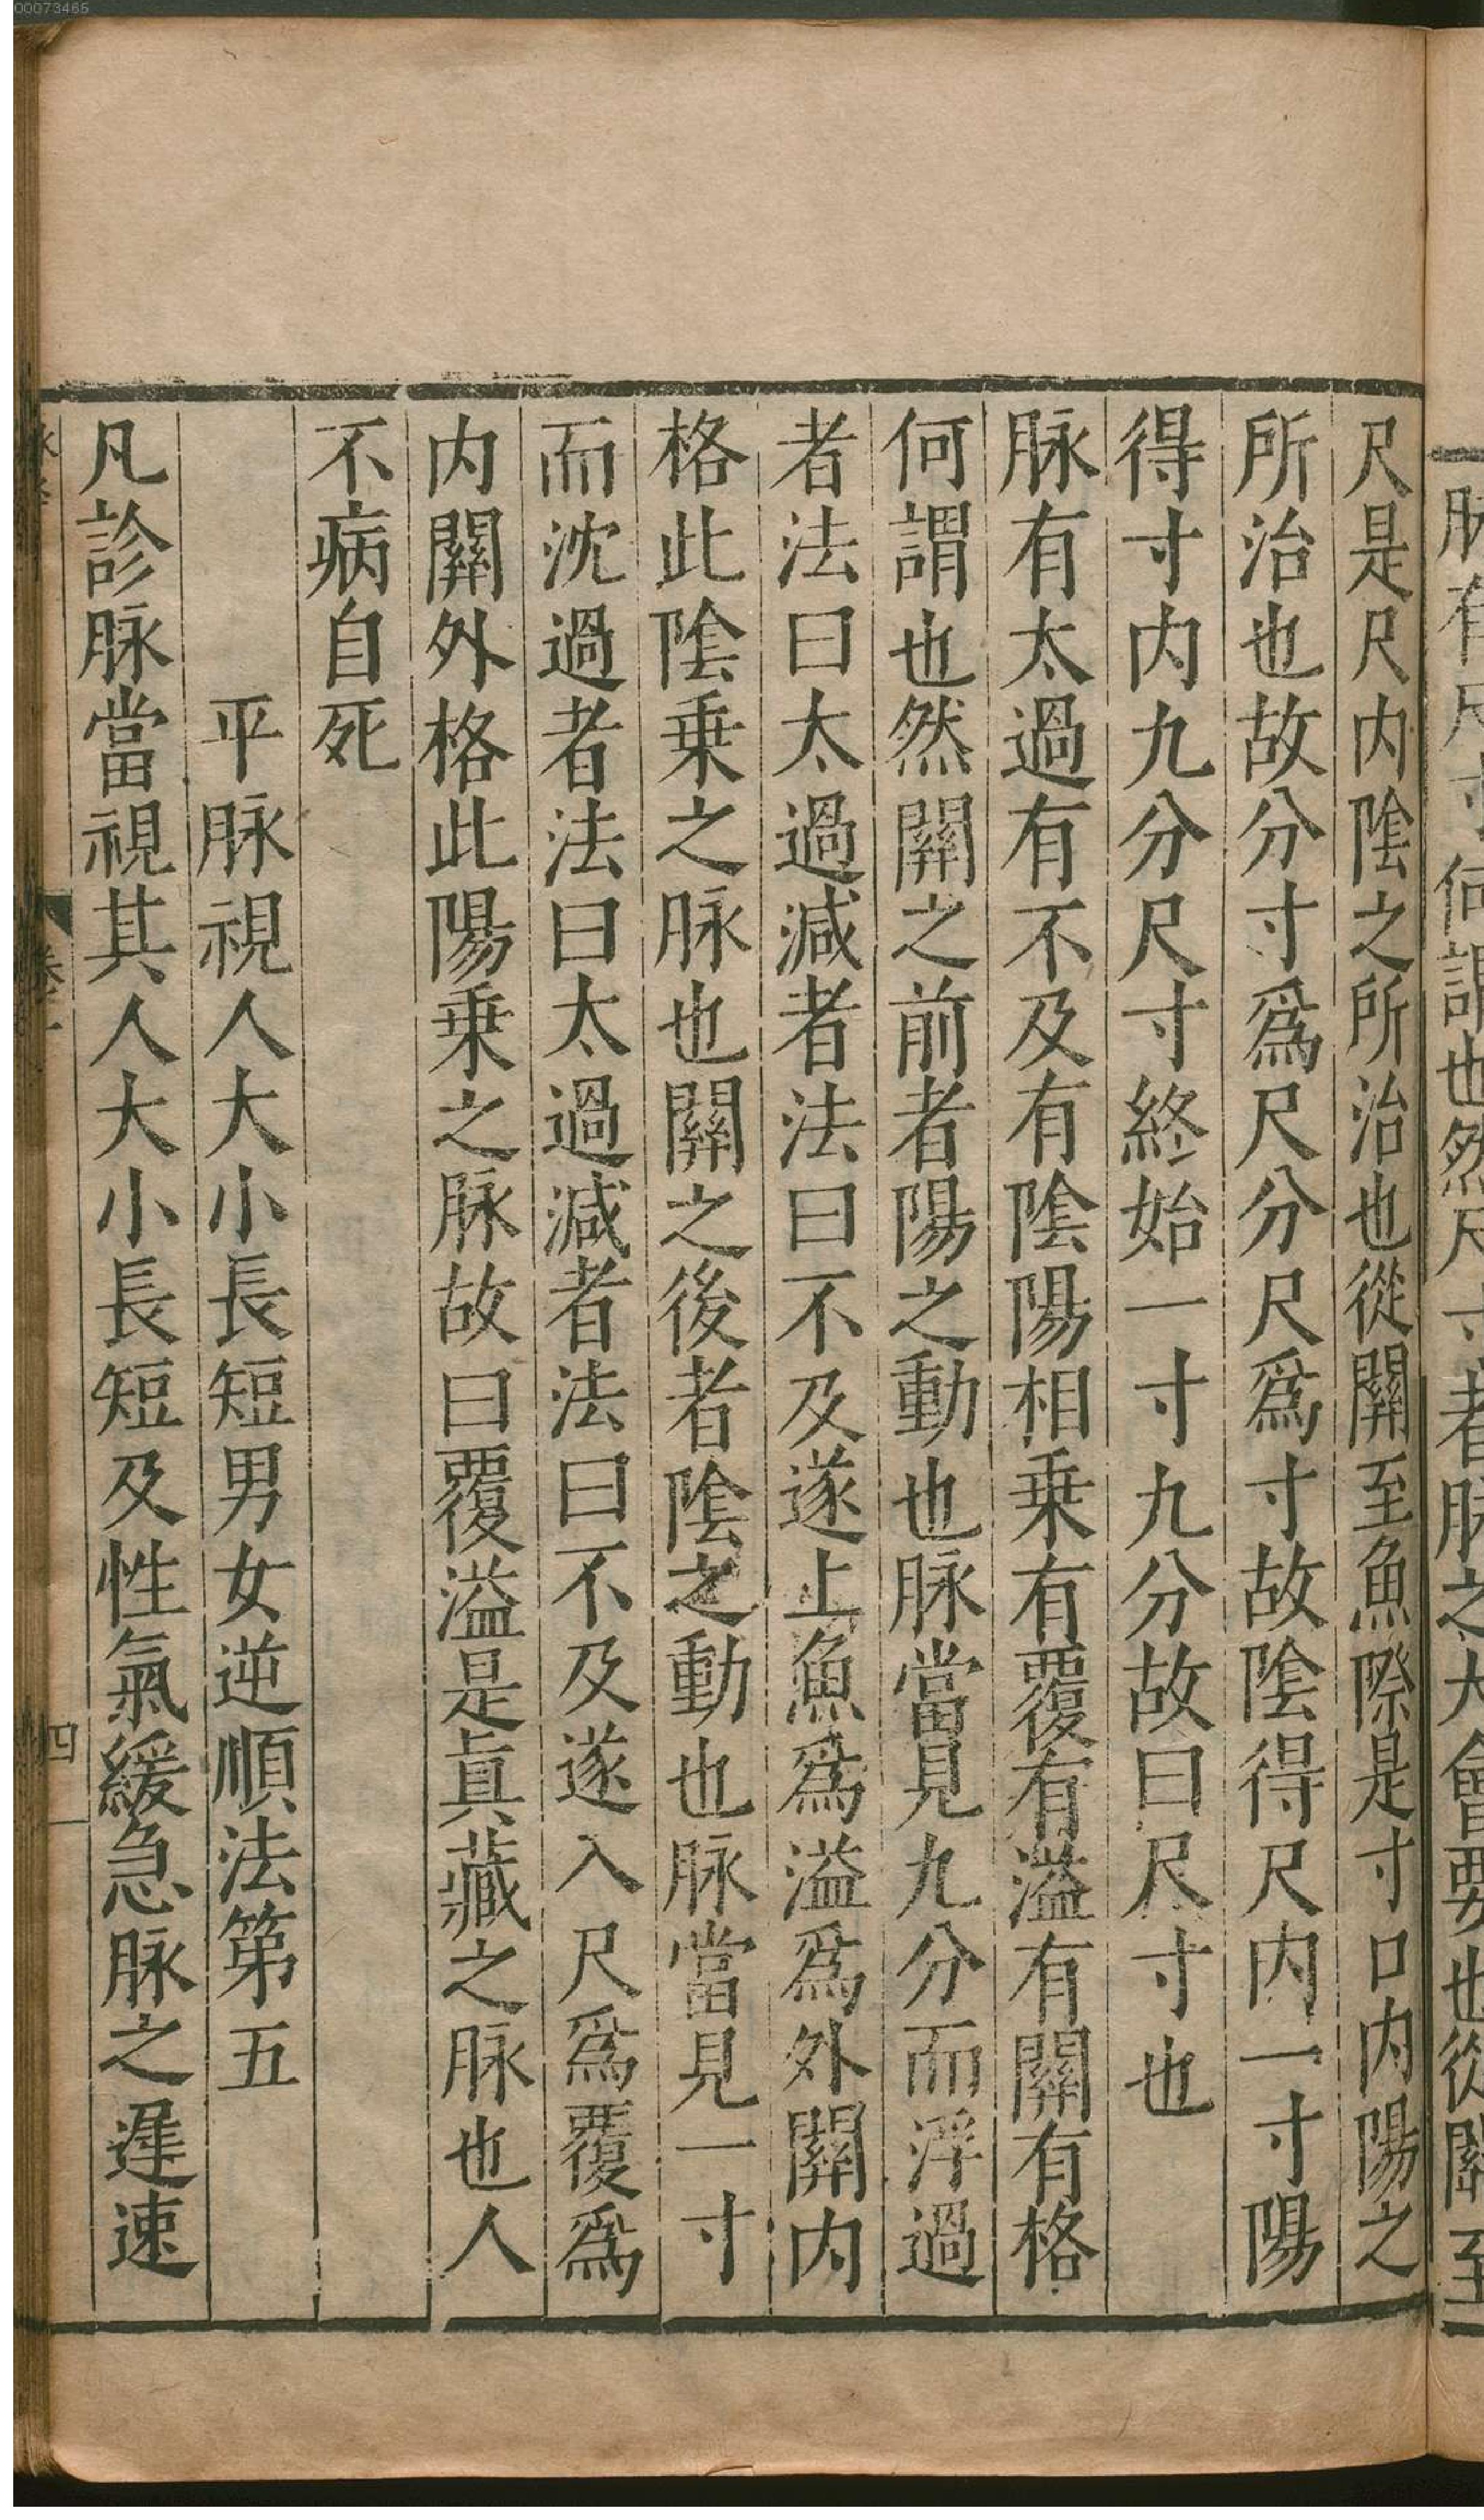 00073465
脉有尺寸何謂也然尺寸者脉之大會要也從關至
尺是尺内陰之所治也從關至魚際是寸口内陽之
所治也故分寸爲尺分尺爲寸故陰得尺内一寸陽
得寸内九分尺寸終始一寸九分故曰尺寸也
脉有太過有不及有陰陽相乗有覆有溢有關有格
何謂也然關之前者陽之動也脉當見九分而浮過
者法曰太過減者法曰不及遂上魚爲溢爲外關内
格此陰乗之脉也關之後者陰之動也脉當見一寸
而沈過者法曰太過減者法曰不及遂入尺爲覆爲
内關外格此陽乗之脉故曰覆溢是真藏之脉也人
不病自死
平脉視人大小長短男女逆順法第五
凡診脉當視其人大小長短及性氣緩急脉之遲速
卷一
四